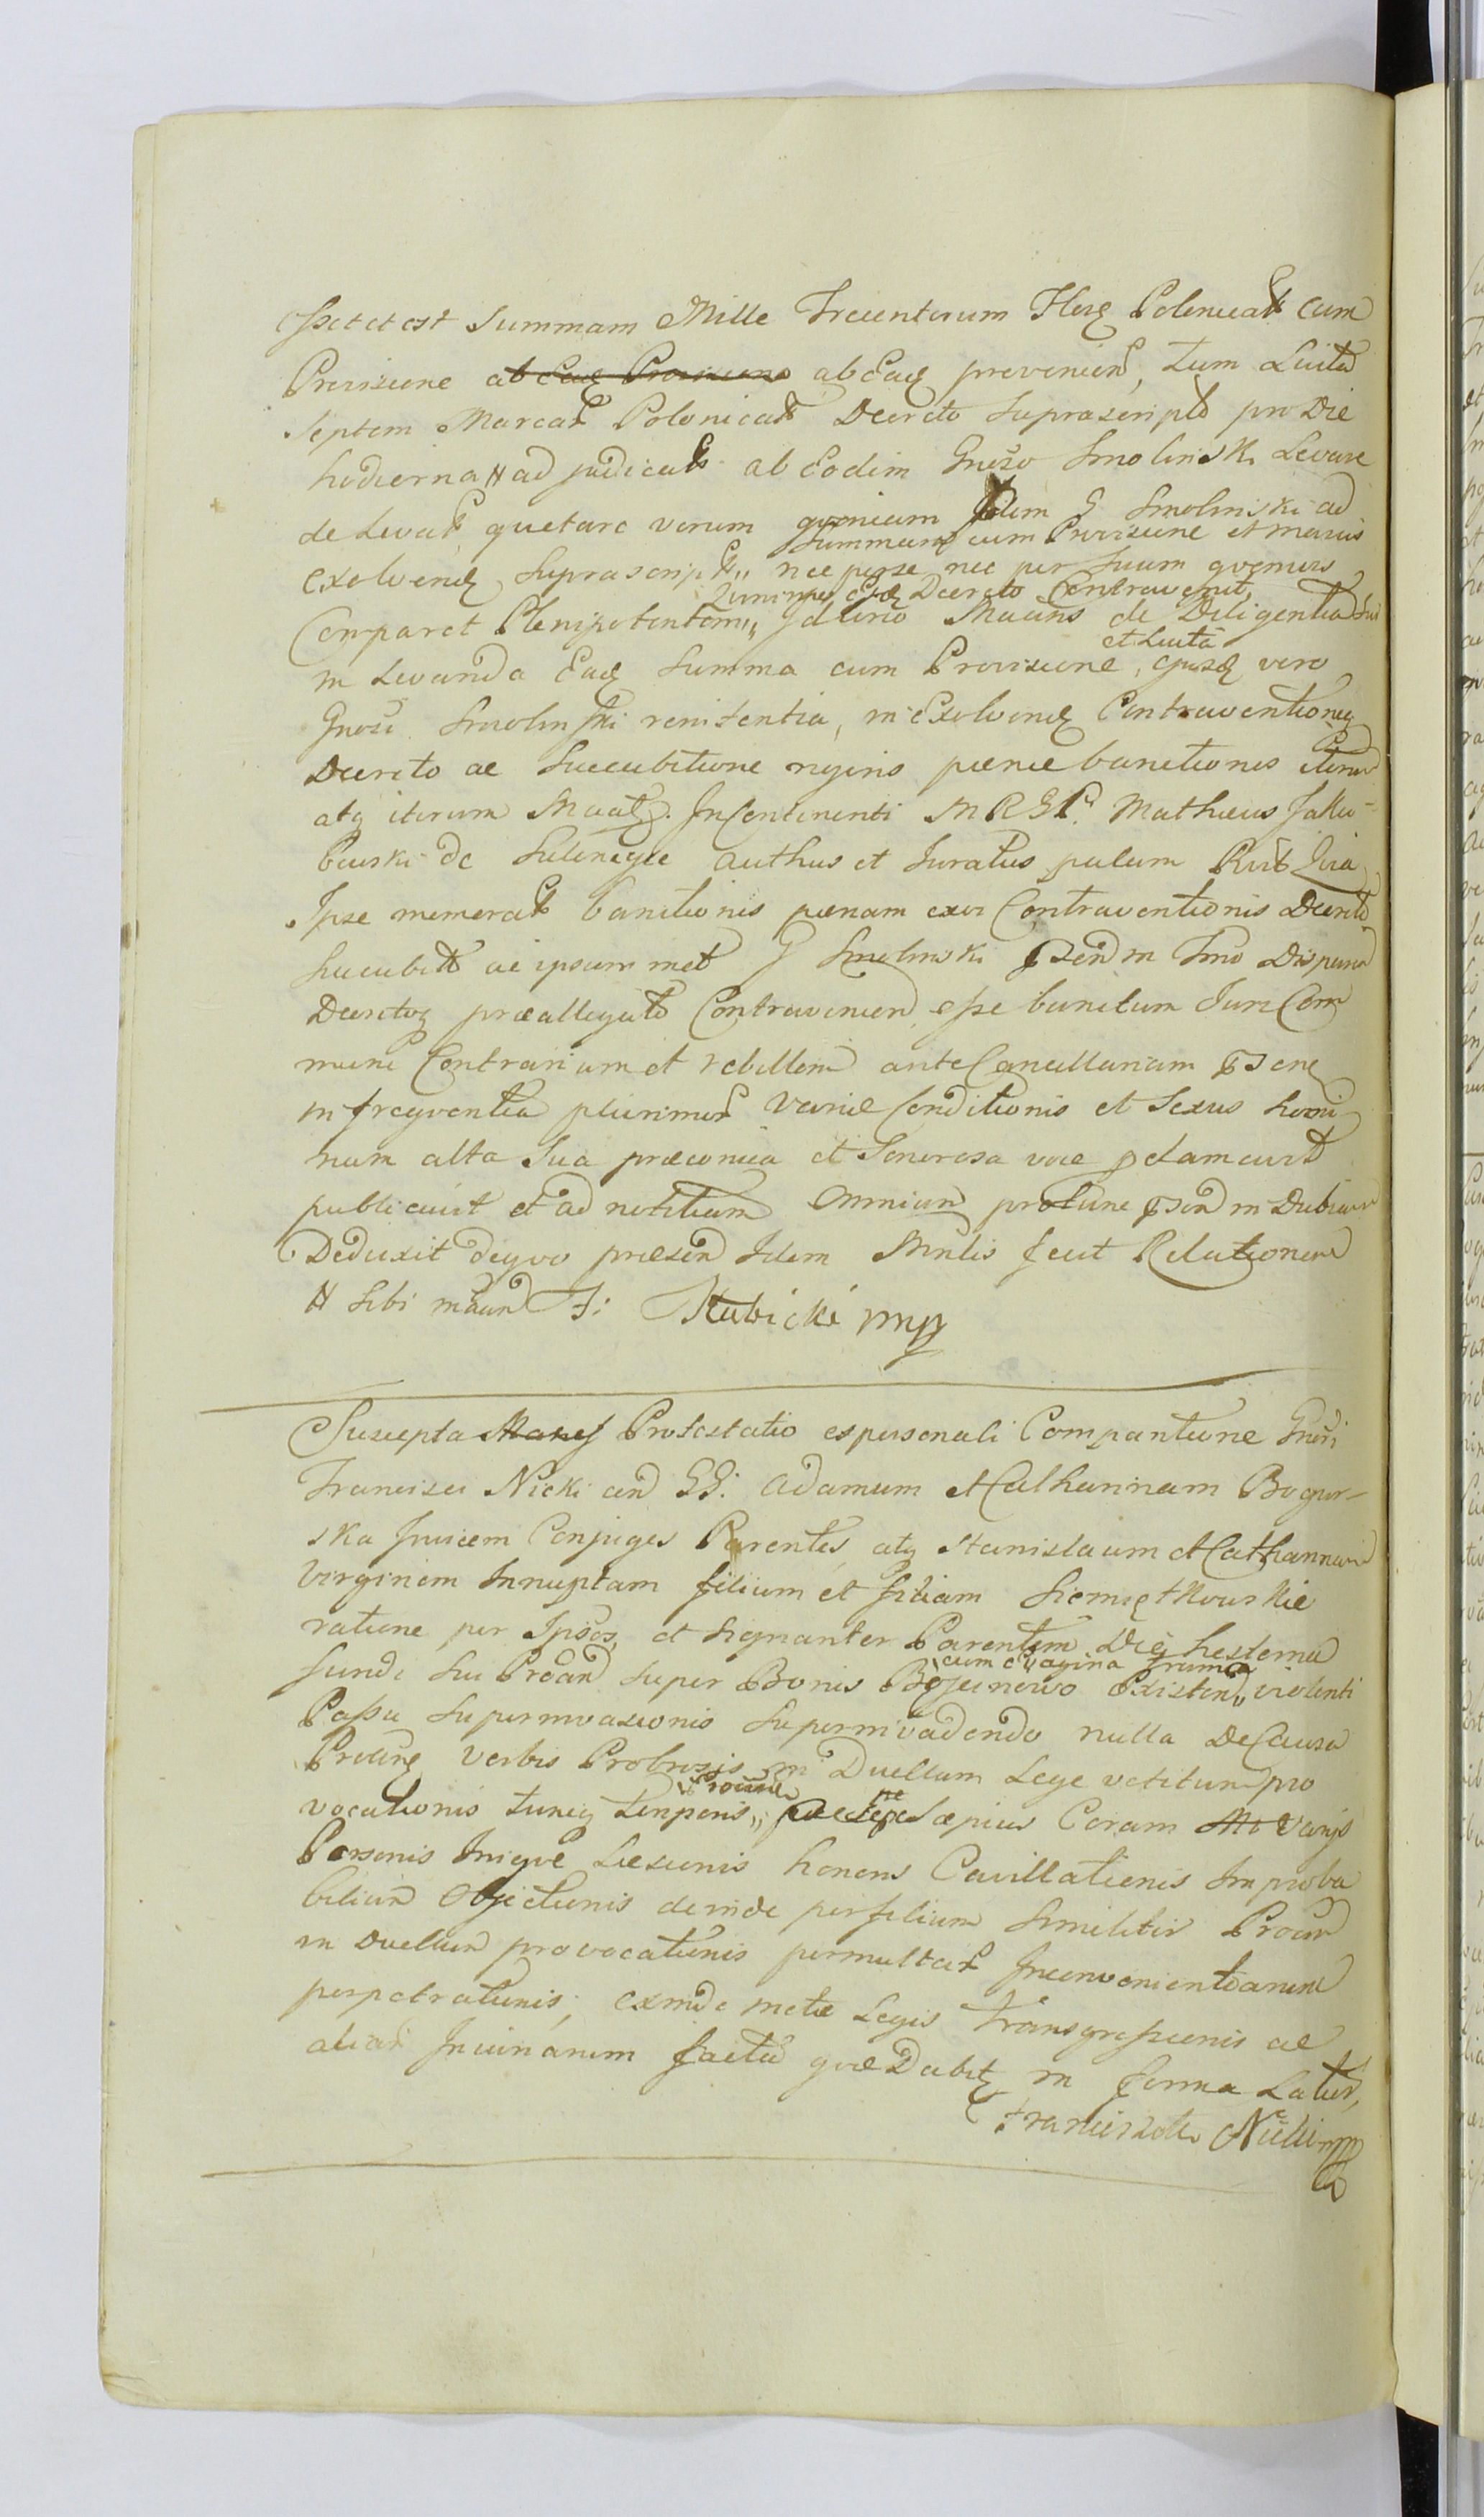 esset et est Summam Mille Trecentorum Floẹ Polonicat cum
Provisione ab Eadẹ Provisione ab Eadẹ provenien, tum Luita
Septem Marcar Polonicar Decreto Suprascripto pro Die
hodierna # adjudicat ab Eodem Gnoso Smolinski Levare
de Levat quetare verum quoniam Idem G Smolinski ad
Summam cum Provisione et marcis
exolvendẹ Suprascript „ nec per se nec per Suum quemvis
Quinimo Ejusdẹ Decreto Contravenit,
Comparet Plenipotentem „ Ideirco Maans de Diligentia Sui
et Luita
in Levanda Eadẹ Summa cum Provisione, Ejusdẹ vero
Gnosi Smolinski renitentia, in Exolvendẹ Contraventioneẹ
Decreto ac Succubitione nigens paenae banitionis iterum
atq iterum Maat. In Continenti M R G P. Mathaeus Jaku-
bowski de authus et Juratus palam Quia
Ipse memorat banitionis paenam exvi Contraventionis Decreto
Sucubit ac ipsum met G Smolinski in Tmo Dispune
Decretoq praeallegato Contravenien esse banitum Juri Com
muni Contrarium et rebellem ante Cancellariam
in freqventia plurimor Variae Conditionis et Sexus homi
num alta Sua praeconica et Sonorosa voce clamavit
publicavit et ad notitiam omnium pro tunc in Dubium
Deduxit deqvo praesen Idem Mnlis fecit Relationem
# Sibi maan F: Kubicki mpp
Suscepta Manif Protestatio ex personali Comparitione Gnosi
Francisci Nicki cun GG. Adamum et Catharinam Bogur-
ska Invicem Conjuges Parentes, atq Stanislaum et Catharinam
Virginem Innuptam filium et filiam Siemiętkowskie
ratione per Ipsos, et Signanter Parentem Die hesterna
cum Evagina
fundi Sui Proan Super Bonis Bojeunowo Existen „ violenti
Passu Superinvasionis Superinvadendo nulla De Causa
verbis Probrosis in Duellum Lege vetitum pro
Proan ne
vocationis tuncq temporis „ Saepius Coram Mt Varijs
Personis Iniqve Laesionis honoris Cavillationis Improba
bilium Objectionis deinde per filium Similiter Proan
in Duellum provocationis permultar Inconvenientiarum
perpetrationis; exinde metae Legis Transgressionis ac
aliar Injuriarum facta qvae Dabitẹ in forma Latior,
Franciszek Nicki mpp